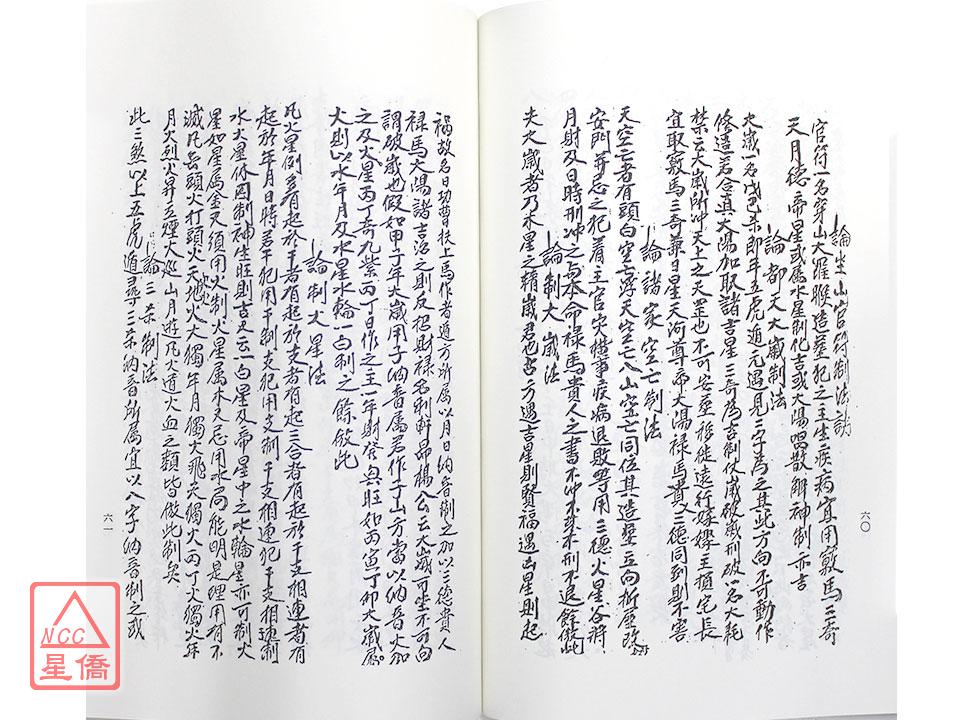 論坐山官符制法訣
官符一名穿山大羅睺造塟犯之主生疾病宜用竅馬三奇
天月德帝星或屬水星制化吉或太陽唱散解神制亦吉
論都天大歲制法
大歲一名戊己煞即年五虎遁元遇見二字為之其此方向不可動作
修造若合真太陽加取諸吉星三奇為吉制伏歲破歲刑破以名大耗
禁云大歲所冲天上之天罡也不可安塟移徙遠行嫁娶主損宅長
宜取竅馬三奇兼日星天河尊帝太陽祿馬貴人三德同到則不害
論諸家空亡制法
天空亡者有頭白空亡浮天空亡八山空亡同位其造塟立向拆屋改
安門并忌之犯着主官灾横事疾病退敗等用三德火星谷將
月財及日時刑冲之與本命祿馬貴人之書不冲不來不刑不退餘倣此
論制大歲法
夫大歲者乃木星之精歲君也占方遇吉星則賢福遇凶星則起
禍故名曰功曹扶上馬作者遁方所屬以月日納音制之加以三德貴人
祿馬太陽諸吉治之則反招財祿名制軒昂楊公云大歲可坐不可向
謂破歲也假如甲子年大歲用子納音屬君作子山方當以納音火加
之及火星丙丁奇九紫丙丁日作之主一年財發與旺如丙寅丁卯大歲屬
火則以水年月及水星水輪一白制之餘倣此
論制火星法
凡火星例多有起於干者有起於支者有起三合者有起於干支相連者有
起於年月日時若干犯用干制支犯用支制干支相連犯干支相連制
水火星休囚制神生旺則吉又云一白星及帝星中之水輪星亦可制火
星如星屬金又須用火制火星屬木又忌用水局能明是理用有不
滅凡各頭火打頭火天地火大獨年月獨火飛天獨火丙丁火獨火年
月火烈火昇玄煙火巡山月遊凡火道火血之類皆倣此制矣
論三煞制法
此三煞以上五虎遁尋三煞納音所屬宜以八字納音制之或
六〇
六一
NCC
星僑